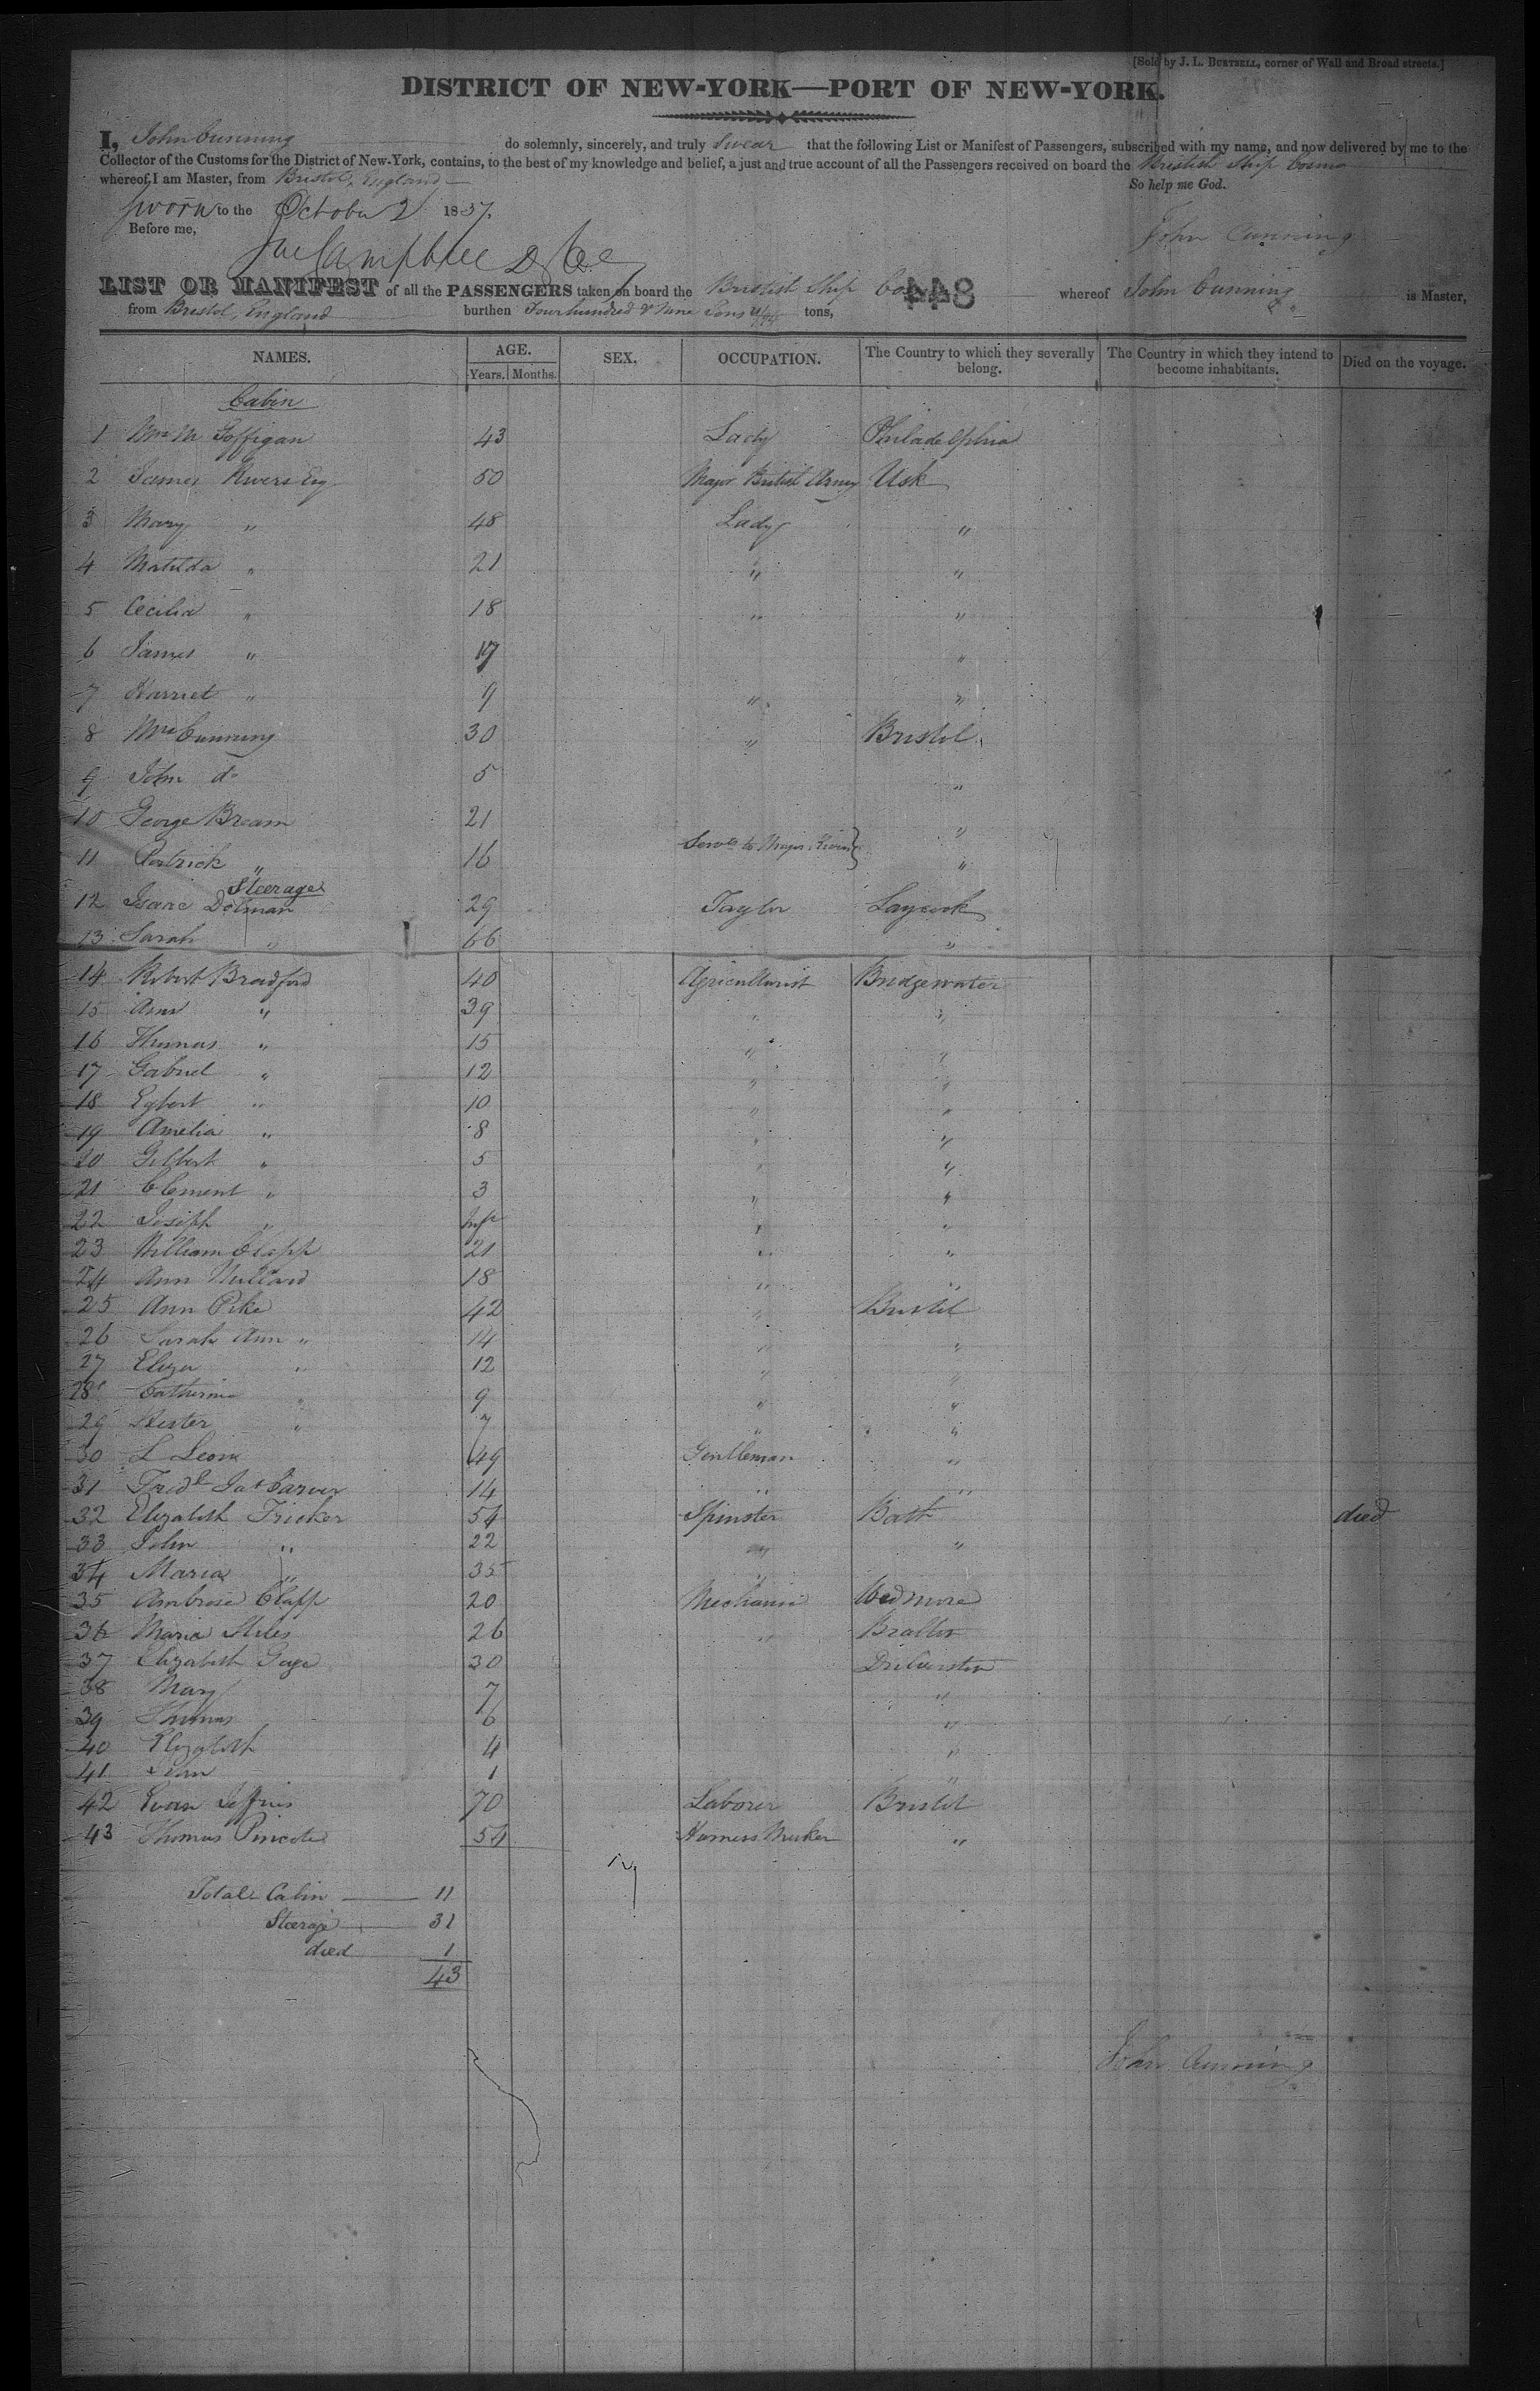 [Sold by J. L. BURTSELL, corner of Wall and Broad streets.]
DISTRICT OF NEW-YORK—PORT OF NEW-YORK.
I, John Cunning do solemnly, sincerely, and truly Swear that the following List or Manifest of Passengers, subscribed with my name, and now delivered by me to the
Collector of the Customs for the District of New-York, contains, to the best of my knowledge and belief, a just and true account of all the Passengers received on board the British Ship Cosmo
whereof I am Master, from Bristol, England
So help me God.
Sworn to the October 2 1837.
John Cunning
Before me,
LIST OR MANIFEST of all the PASSENGERS taken on board the British Ship 448 whereof John Cunning is Master,
from Bristol, England burthen Four hundred & Nine Tons tons,
NAMES. AGE. SEX. OCCUPATION. The Country to which they severally belong. The Country in which they intend to become inhabitants. Died on the voyage.
Years. Months.
Cabin
1 Mrs M 43 Lady Philadelphia
2 James Rivers Esq 50 Major British Army Usk
3 Mary " 48 Lady "
4 Matilda " 21 " "
5 Cecilia " 18 " "
6 James " 17 "
7 Harriet " 9 " "
8 Mrs Cunning 30 " Bristol
9 John do 5 "
10 George Bream 21 "
11 Patrick " 16 Servts to Major Rivers } "
Steerage
12 Isaac Dolman 29 Taylor Laycock
13 Sarah " 66 "
14 Robert Bradford 40 Agriculturist Bridgewater
15 Ann " 39 " "
16 Thomas " 15 " "
17 Gabriel " 12 " "
18 Egbert " 10 " "
19 Amelia " 8 " "
20 Gilbert " 5 " "
21 Clement " 3 " "
22 Joseph " Inft " "
23 William Clapp 21 " "
24 Ann 18 " "
25 Ann Pike 42 " Bristol
26 Sarah Ann " 14 " "
27 Eliza " 12 " "
28 Catherine " 9 " "
29 Hester " 7 " "
30 L Leon 49 Gentleman "
31 Fredk Jas Carver 14 " "
32 Elizabeth Tricker 54 Spinster Bath died
33 John " 22 " "
34 Maria " 35 "
35 Ambrose Clapp 20 Mechanic Wedmore
36 Maria Stiles 26 "
37 Elizabeth Gage 30
38 Mary 7 "
39 Thomas 6 "
40 Elizabeth 4 "
41 John 1 "
42 Evan Jeffries 70 Laborer Bristol
43 Thomas 54 Harness Maker "
Total Cabin 11
Steerage 31
died 1
43
John Cunning